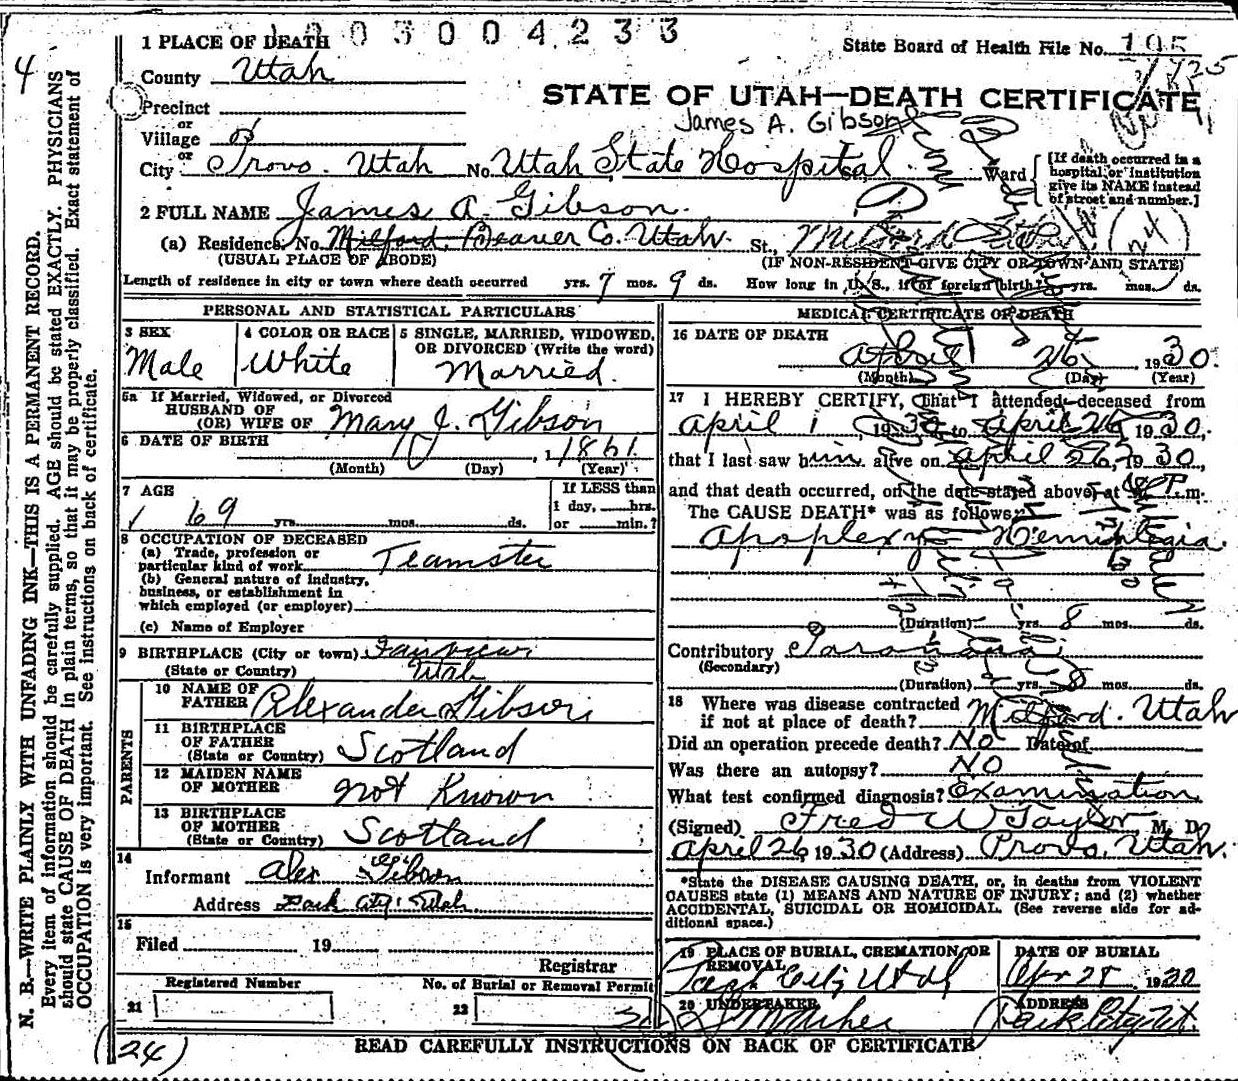 003004233
1 PLACE OF DEATH
State Board of Health File No. 195
County Utah
STATE OF UTAH—DEATH CERTIFICATE
James A. Gibson
Precinct
or
Village
or
City Provo. Utah No. Utah State Hospital St., Ward
[If death occurred in a hospital or institution give its NAME instead of street and number.]
2 FULL NAME James A. Gibson.
(a) Residence, No. Milford, Beaver Co. Utah. St., Milford
(USUAL PLACE OF ABODE) (IF NON-RESIDENT GIVE CITY OR TOWN AND STATE)
(24)
Length of residence in city or town where death occurred yrs. 7 mos. 9 ds. How long in U. S., if of foreign birth? yrs. mos. ds.
PERSONAL AND STATISTICAL PARTICULARS
3 SEX
Male
4 COLOR OR RACE
White
5 SINGLE, MARRIED, WIDOWED, OR DIVORCED (Write the word)
Married.
5a If Married, Widowed, or Divorced
HUSBAND OF
(OR) WIFE OF Mary J. Gibson
6 DATE OF BIRTH
1861
(Month) (Day) (Year)
7 AGE
69 yrs. mos. ds.
If LESS than
1 day, hrs.
or min.?
8 OCCUPATION OF DECEASED
(a) Trade, profession or
particular kind of work Teamster
(b) General nature of industry,
business, or establishment in
which employed (or employer)
(c) Name of Employer
9 BIRTHPLACE (City or town) Fairview
(State or Country) Utah
PARENTS
10 NAME OF
FATHER Alexander Gibson
11 BIRTHPLACE
OF FATHER
(State or Country) Scotland
12 MAIDEN NAME
OF MOTHER not Known
13 BIRTHPLACE
OF MOTHER
(State or Country) Scotland
14
Informant Alex Gibson
Address Park City, Utah
15
Filed 19
Registrar
Registered Number No. of Burial or Removal Permit
21 22
MEDICAL CERTIFICATE OF DEATH
16 DATE OF DEATH
April 26 1930.
(Month) (Day) (Year)
17 I HEREBY CERTIFY, That I attended deceased from
April 1, 1930 to April 26, 1930,
that I last saw him alive on April 26, 1930,
and that death occurred, on the date stated above, at P. m.
The CAUSE DEATH* was as follows:
Apoplexy Hemiplegia.
(Duration) yrs. 8 mos. ds.
Contributory
(Secondary)
(Duration) yrs. 8 mos. ds.
18 Where was disease contracted
if not at place of death? Milford. Utah
Did an operation precede death? No Date of
Was there an autopsy? No
What test confirmed diagnosis? Examination
(Signed) Fred W Taylor M. D.
April 26, 1930 (Address) Provo, Utah.
*State the DISEASE CAUSING DEATH, or, in deaths from VIOLENT
CAUSES state (1) MEANS AND NATURE OF INJURY; and (2) whether
ACCIDENTAL, SUICIDAL OR HOMICIDAL. (See reverse side for ad-
ditional space.)
19 PLACE OF BURIAL, CREMATION, OR
REMOVAL
Park City Utah
DATE OF BURIAL
Apr 28 1930
20 UNDERTAKER
ADDRESS
Park City Ut.
(24)
READ CAREFULLY INSTRUCTIONS ON BACK OF CERTIFICATE
4
N. B.—WRITE PLAINLY WITH UNFADING INK—THIS IS A PERMANENT RECORD.
Every item of information should be carefully supplied. AGE should be stated EXACTLY. PHYSICIANS
should state CAUSE OF DEATH in plain terms, so that it may be properly classified. Exact statement of
OCCUPATION is very important. See instructions on back of certificate.